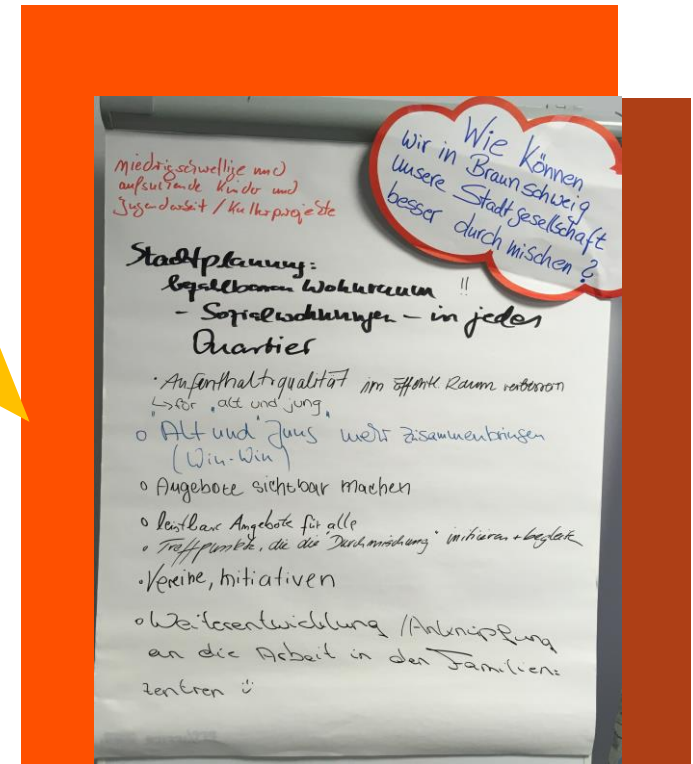 Wie Können
wir in Braunschweig
unsere Stadtgesellschaft
besser durchmischen?
niedrigschwellige und
aufsuchende Kinder und
Jugendarbeit / Kulturprojekte
Stadtplanung:
bezahlbaren Wohnraum !!
- Sozialwohnungen - in jedes
Quartier
· Aufenthaltsqualität im öffentl. Raum verbessern
↳ für "alt und jung"
o Alt und Jung mehr zusammenbringen
(Win-Win)
o Angebote sichtbar machen
o leistbare Angebote für alle
• Treffpunkte, die die "Durchmischung" initiieren + begleit
· Vereine, Initiativen
o Weiterentwicklung / Anknüpfung
an die Arbeit in den Familien=
zentren ü